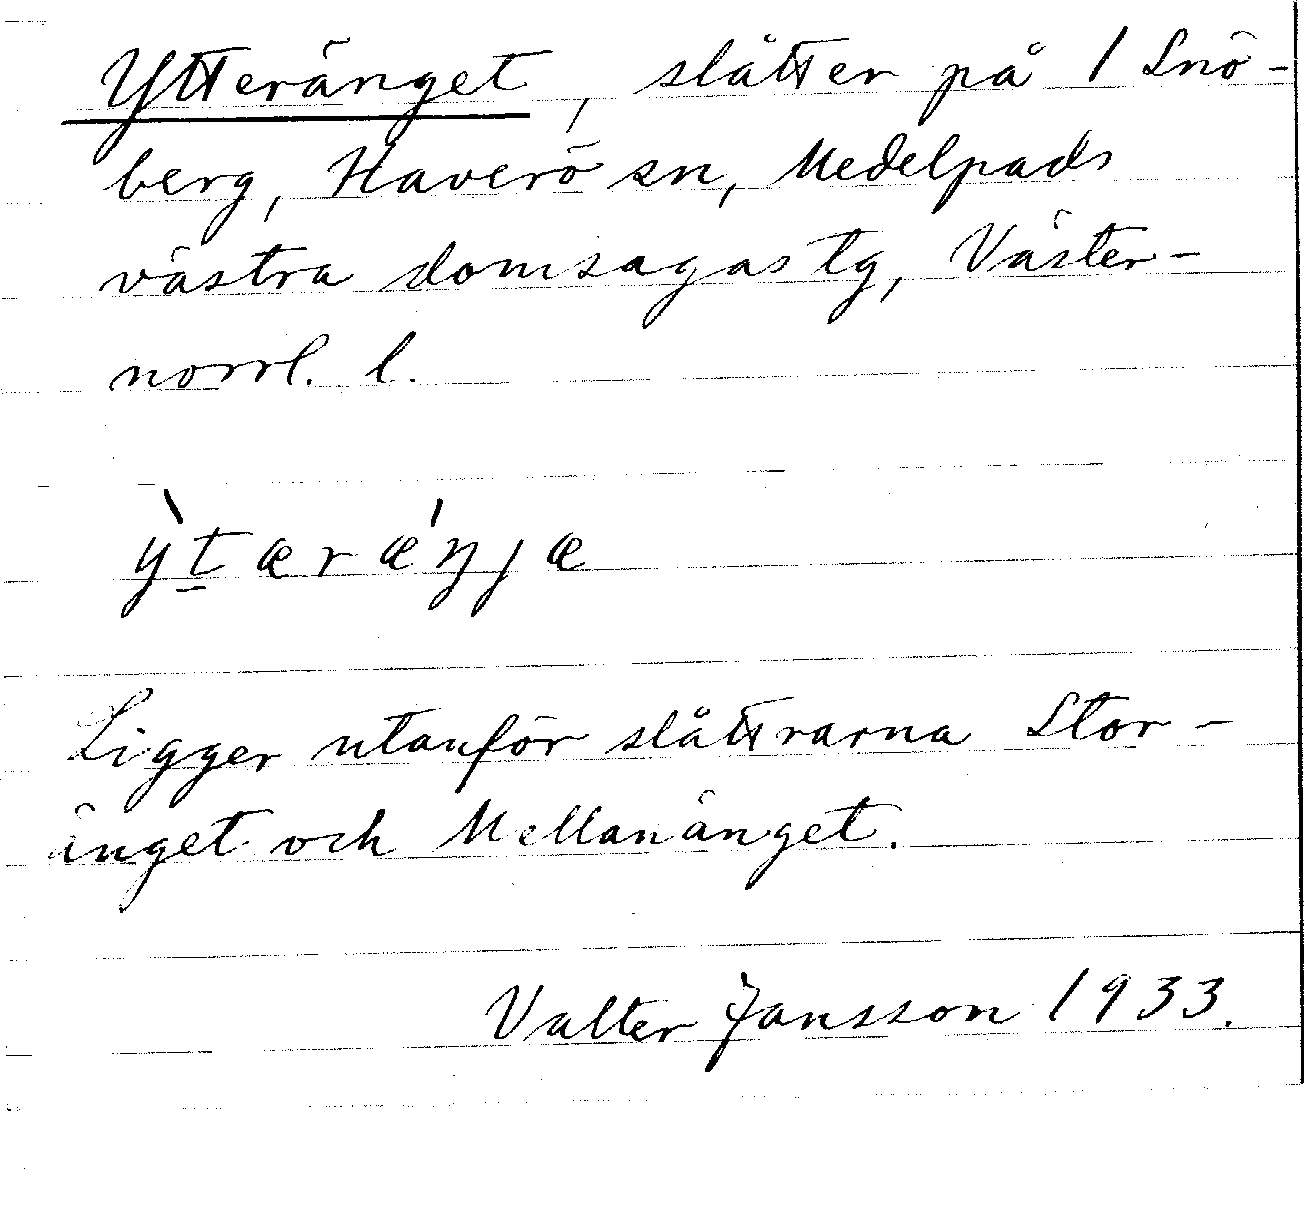 Ytteränget, slåtter på 1 Snö-
berg, Haverö sn, Medelpads
västra domsagas tg, Väster-
norrl. l.
ỳt̲ærǽŋjæ
Ligger utanför slåttrarna Stor-
änget och Mellanänget.
Valter Jansson 1933.